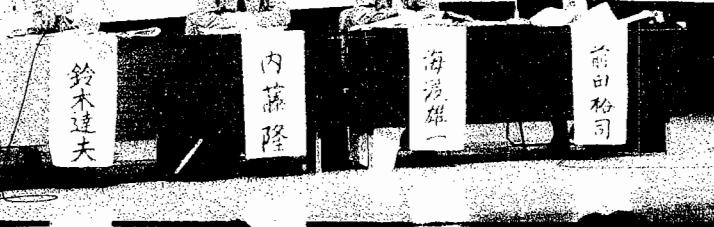 鈴木達夫
内藤隆
海渡雄一
前田裕司